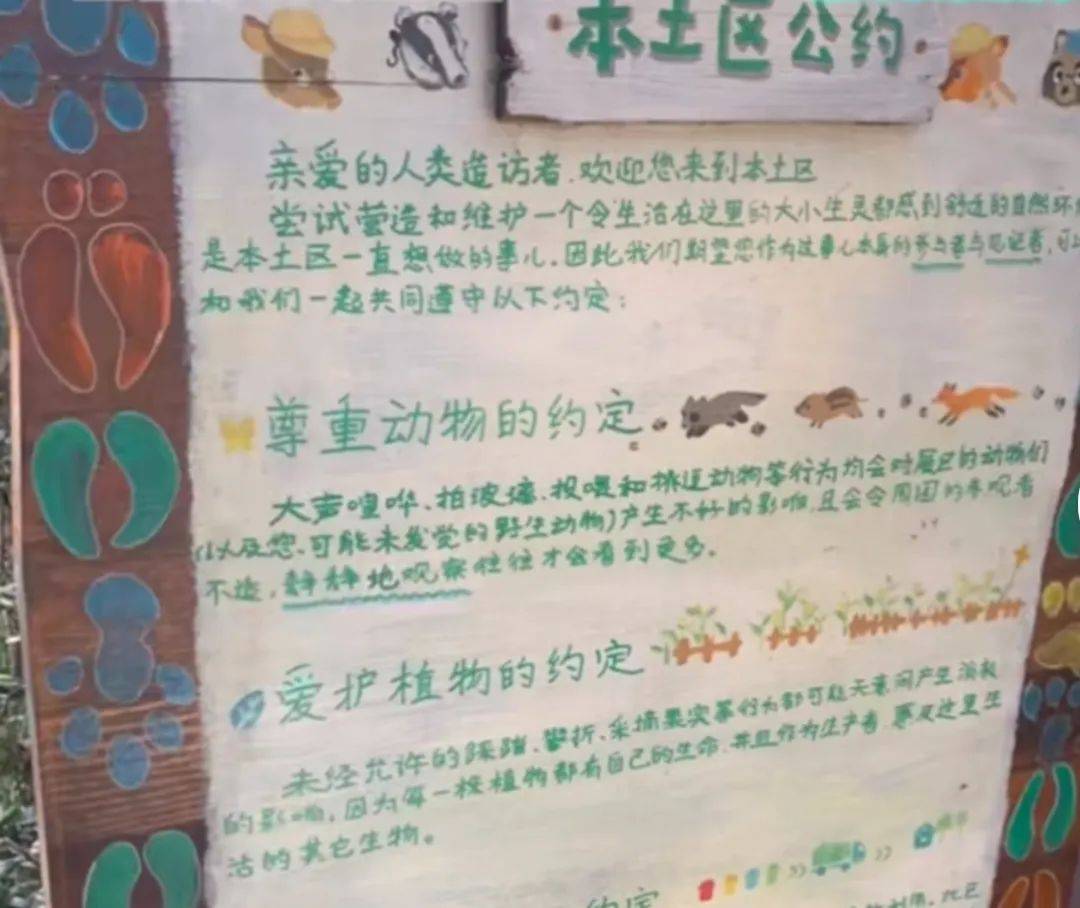 本土区公约
亲爱的人类造访者，欢迎您来到本土区
尝试营造和维护一个令生活在这里的大小生灵都感到舒适的自然环
是本土区一直想做的事儿，因此我们期望您作为这事儿本身的参与者与见证者，可以
和我们一起共同遵守以下约定：
尊重动物的约定
大声喧哗、拍玻璃、投喂和挑逗动物等行为均会对展区的动物们
（以及您可能未发觉的野生动物）产生不好的影响，且会令周围的参观者
不适，静静地观察往往才会看到更多。
爱护植物的约定
未经允许的踩踏、攀折、采摘果实等行为都可能无意间产生消极
的影响，因为每一棵植物都有自己的生命，并且作为生产者，惠及这里生
活的其它生物。
约定